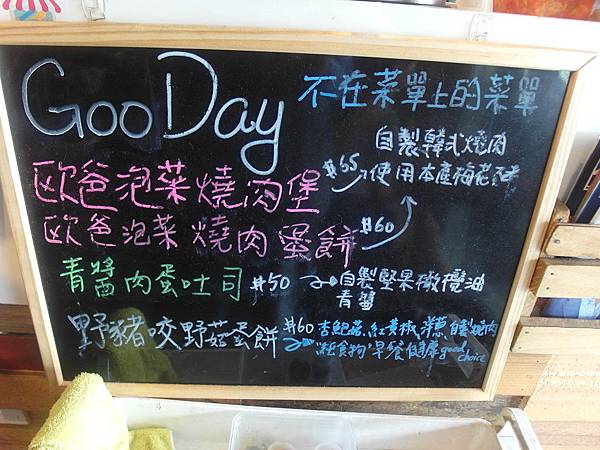 GooDay
不在菜單上的菜單
自製韓式燒肉
使用本產梅花豬
歐爸泡菜燒肉堡 $65
歐爸泡菜燒肉蛋餅 $60
青醬肉蛋吐司 $50
自製堅果橄欖油
青醬
野豬咬野菇蛋餅 $60
杏鮑菇 紅黃椒 自製燒肉
食物 早餐健康 good
choice